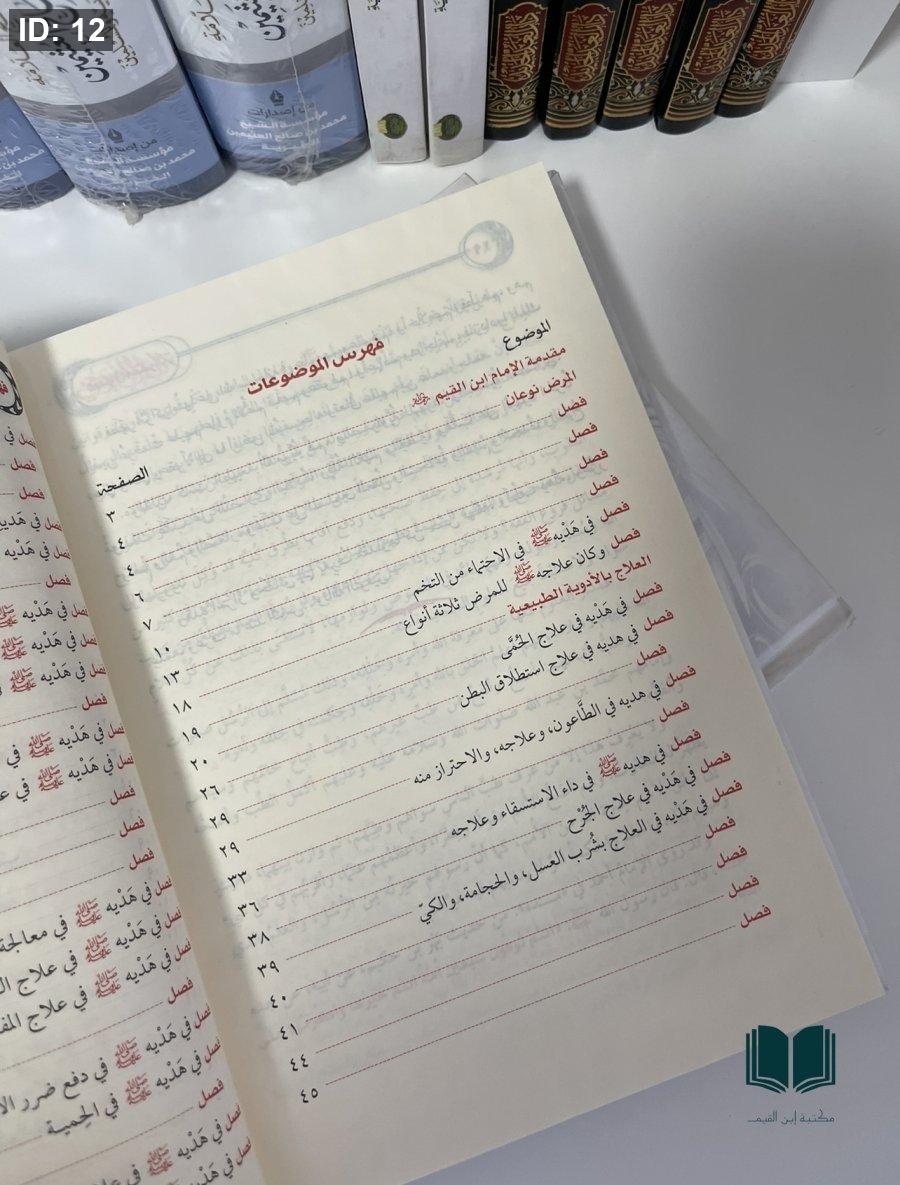 ID: 12
من إصدارات
مؤسسة الشيخ
محمد بن صالح العثيمين
الخيرية
من إصدارات
مؤسسة الشيخ
محمد بن صالح العثيمين
الخيرية
فهرس الموضوعات
الموضوع الصفحة
مقدمة الإمام ابن القيم ٣
المرض نوعان ٤
فصل ٤
فصل ٦
فصل ٧
فصل ١٠
فصل في هَدْيِه ﷺ في الاحتماء من التخم ١٣
فصل وكان علاجه ﷺ للمرض ثلاثة أنواع ١٨
العلاج بالأدوية الطبيعية ١٩
فصل في هَدْيِه في علاج الحُمَّى ٢٠
فصل في هديه في علاج استطلاق البطن ٢٦
فصل ٢٩
فصل في هديه في الطَّاعون، وعلاجه، والاحتراز منه ٢٩
فصل ٣٣
فصل في هديه ﷺ في داء الاستسقاء وعلاجه ٣٦
فصل في هَدْيِه في علاج الجُرْح ٣٨
فصل في هَدْيِه في العلاج بشُرب العسل، والحجامة، والكيّ ٣٩
فصل ٤٠
فصل ٤١
فصل ٤٤
فصل ٤٥
فصل في
فصل
فصل
فصل في هَدْيِه
فصل في هَدْيِه
فصل
فصل في هَدْيِه ﷺ
فصل في هَدْيِه ﷺ
فصل في هَدْيِه ﷺ
فصل
فصل في هَدْيِه ﷺ في
فصل في هَدْيِه ﷺ في
فصل
فصل
فصل
فصل في هَدْيِه ﷺ في معالجة
فصل في هَدْيِه ﷺ في علاج
فصل في هَدْيِه ﷺ في علاج
فصل
فصل في هَدْيِه ﷺ في دفع ضرر
فصل في هَدْيِه ﷺ في الحِمية
فصل
فصل في هَدْيِه ﷺ في
فصل في هَدْيِه
مكتبة ابن القيم